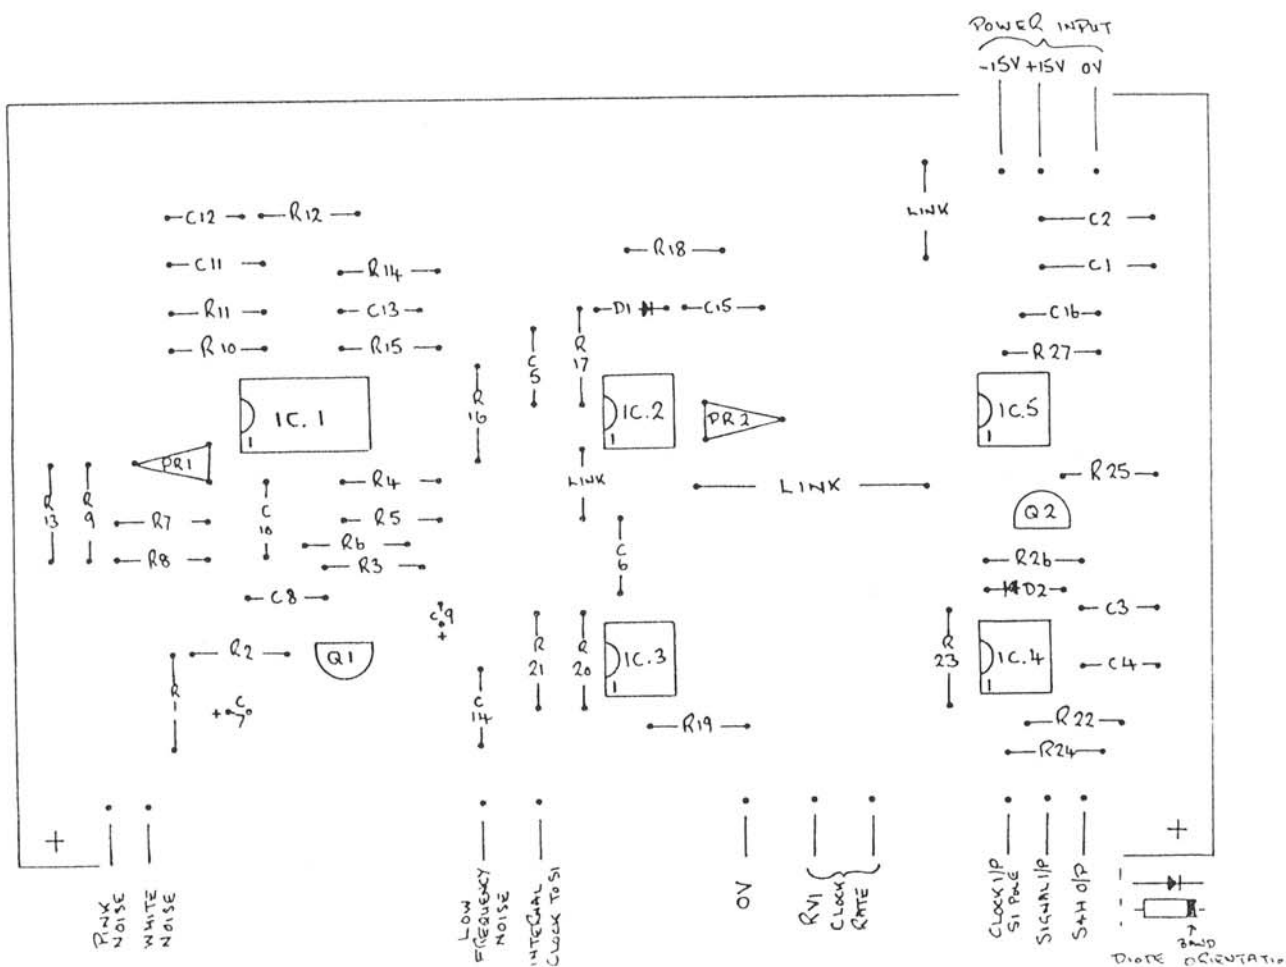 POWER INPUT
-15V +15V 0V
C12 R12
LINK
C2
R18
C11
R14
C1
R11
C13
D1
C15
C16
R10
R15
C5
R17
R27
R16
IC.1
1
IC.2
1
PR2
IC.5
1
PR1
R4
LINK
LINK
R25
R13
R9
R7
C10
R5
Q2
R8
R6
R3
C6
R26
D2
C8
C9
+
C3
R2
Q1
R21
R20
IC.3
1
R23
IC.4
1
C4
R1
+ C7
C14
R19
R22
R24
+
+
PINK
NOISE
WHITE
NOISE
LOW
FREQUENCY
NOISE
INTERNAL
CLOCK TO S1
0V
RV1
CLOCK
RATE
CLOCK I/P
S1 POLE
SIGNAL I/P
S+H O/P
BAND
DIODE ORIENTATIO